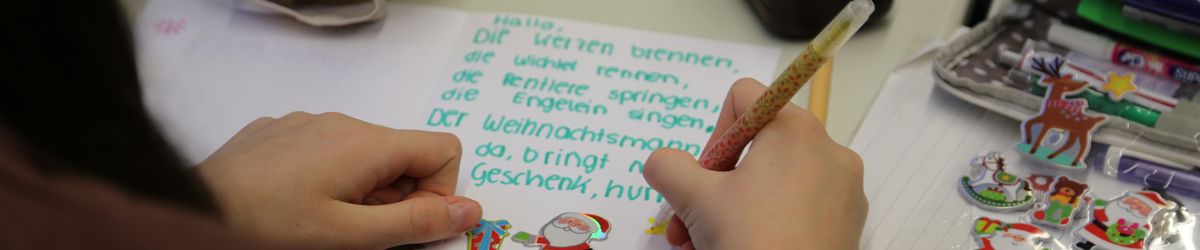 Hallo,
Die Kerzen brennen,
die Wichtel rennen,
die Rentiere springen,
die Engelein singen,
Der Weihnachtsmann
da, bringt
Geschenk, hur